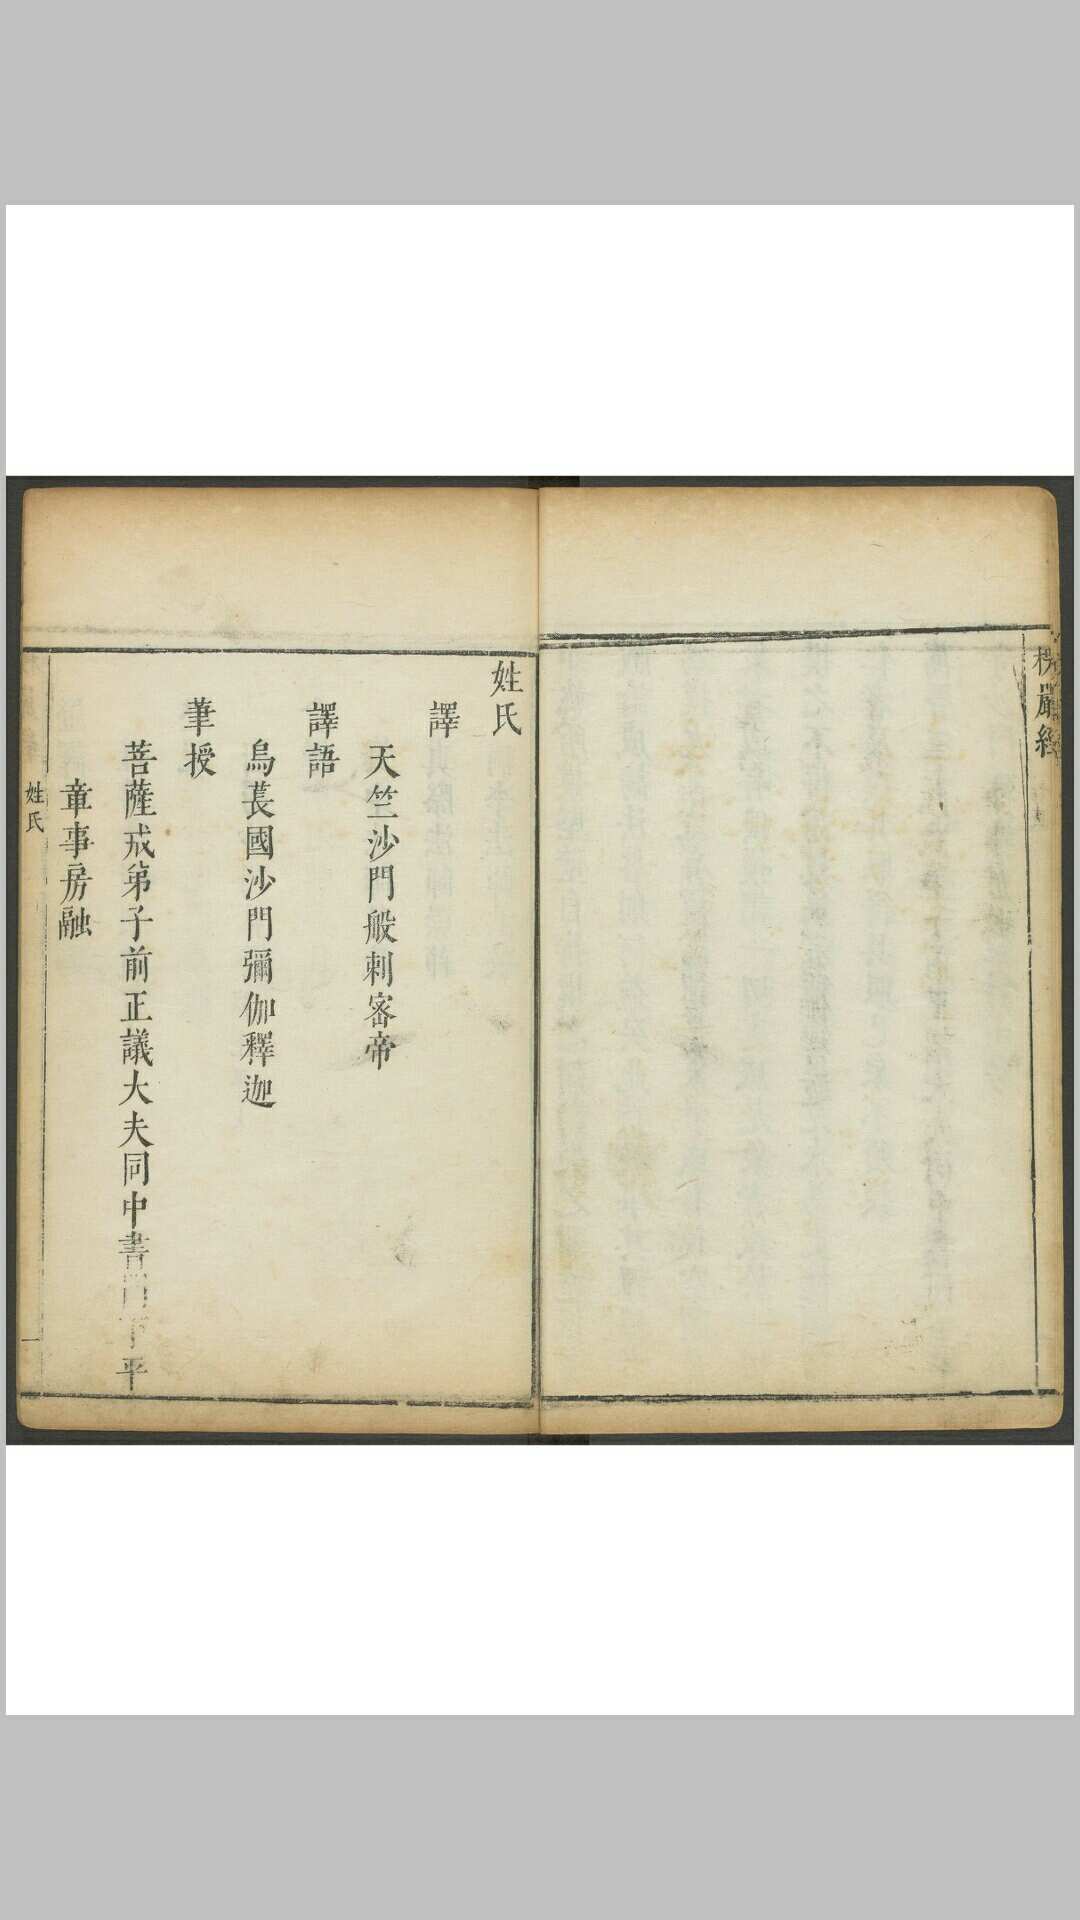 楞嚴經
姓氏
譯
天竺沙門般剌密帝
譯語
烏萇國沙門彌伽釋迦
筆授
菩薩戒弟子前正議大夫同中書門下平
章事房融
姓氏
一